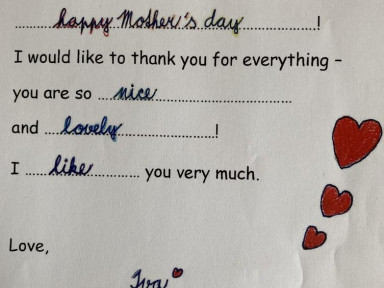 happy Mother's day!
I would like to thank you for everything –
you are so nice
and lovely!
I like you very much.
Love,
Iva